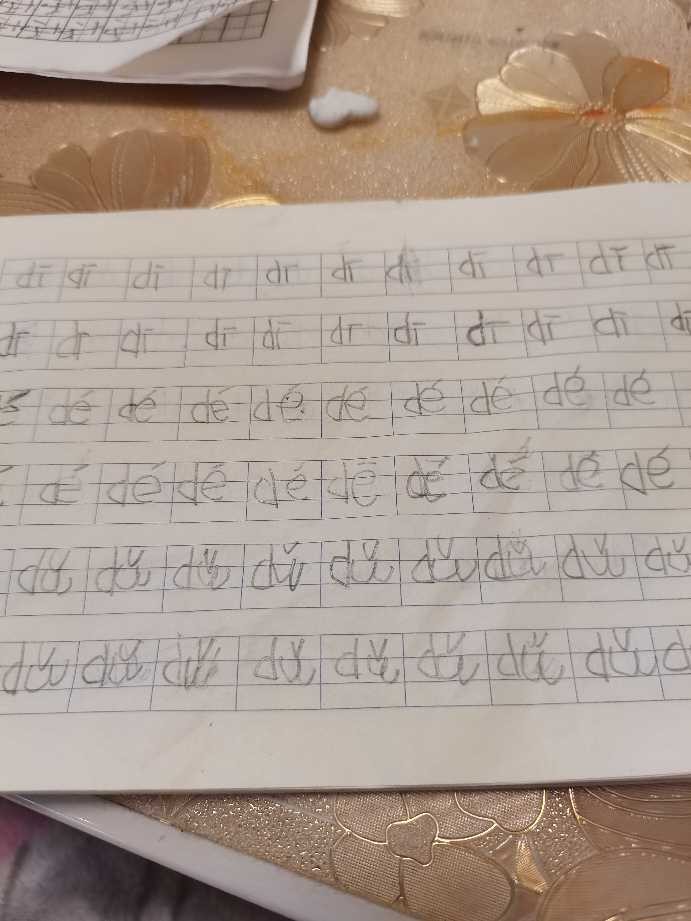 dī dī dī dī dī dī dī dī dī dī dī
dī dī dī dī dī dī dī dī dī dī dī
dé dé dé dé dé dé dé dé dé
dé dé dé dé dé dé dé dé dé
dǔ dǔ dǔ dǔ dǔ dǔ dǔ dǔ dǔ
dǔ dǔ dǔ dǔ dǔ dǔ dǔ dǔ